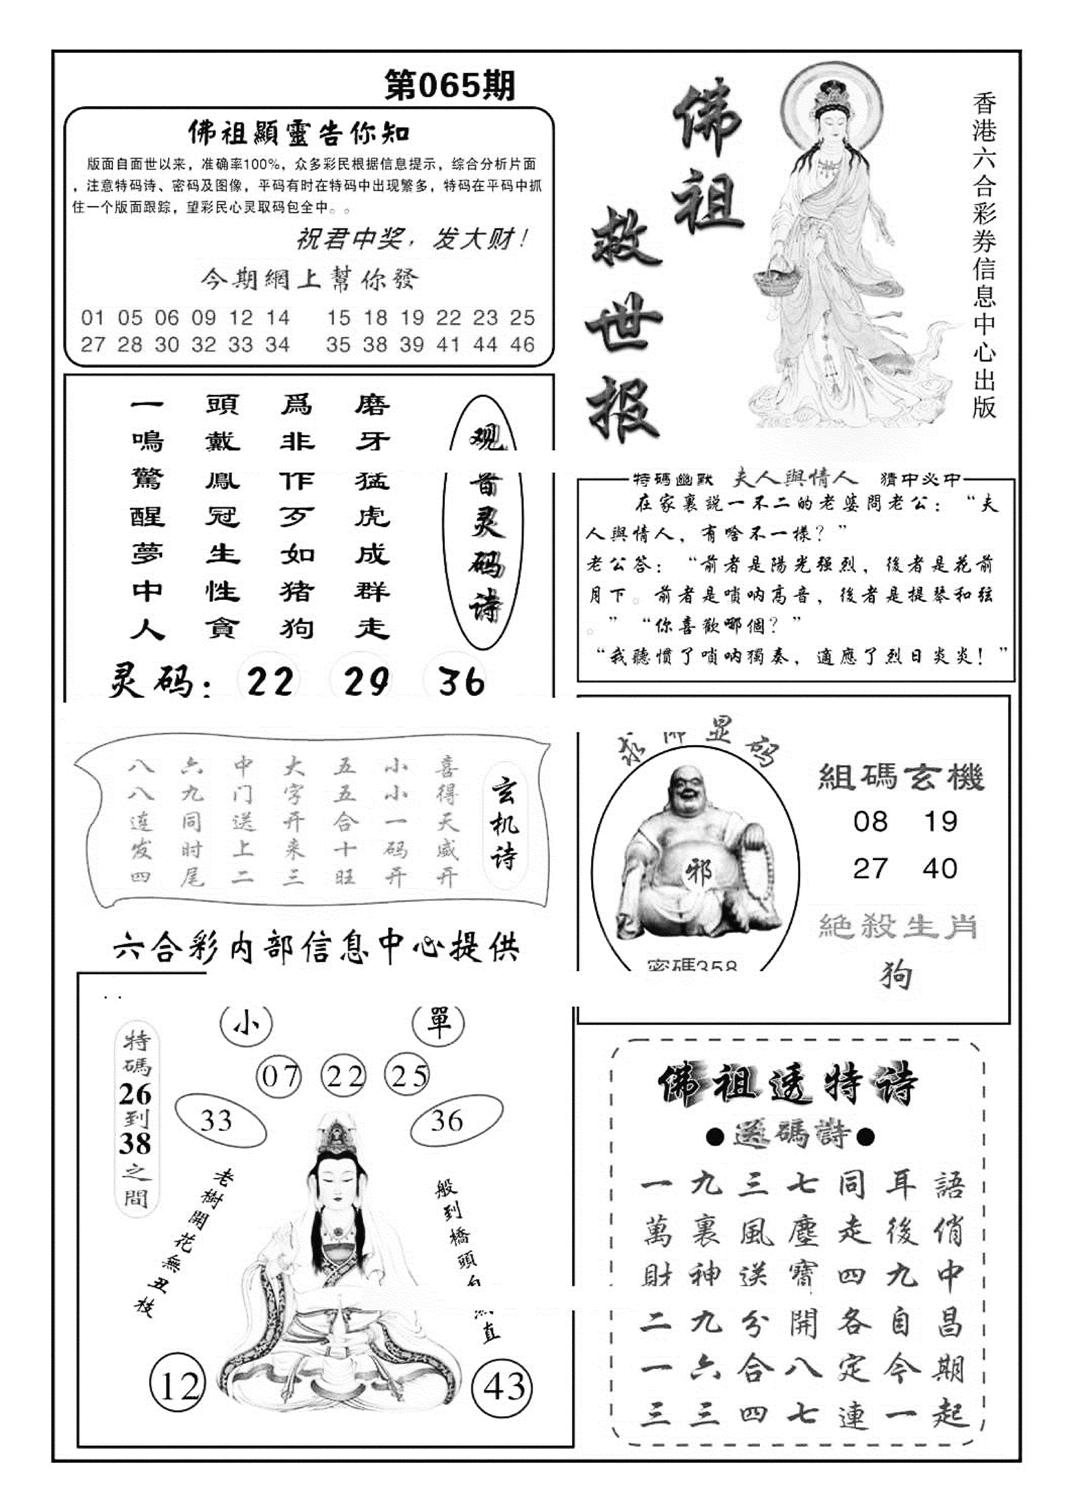 第065期
佛祖顯靈告你知
版面自面世以来，准确率100%，众多彩民根据信息提示，综合分析片面
，注意特码诗、密码及图像，平码有时在特码中出现繁多，特码在平码中抓
住一个版面跟踪，望彩民心灵取码包全中。。
祝君中奖，发大财！
今期網上幫你發
01 05 06 09 12 14 15 18 19 22 23 25
27 28 30 32 33 34 35 38 39 41 44 46
佛祖
救世报
香港六合彩券信息中心出版
观音灵码诗
磨牙猛虎成群走
爲非作歹如猪狗
頭戴鳳冠生性貪
一鳴驚醒夢中人
灵码：22 29 36
特碼幽默 夫人與情人 猜中必中
在家裏説一不二的老婆問老公：“夫
人與情人，有啥不一樣？”
老公答：“前者是陽光强烈，後者是花前
月下。前者是唢呐高音，後者是提琴和弦
。”“你喜歡哪個？”
“我聽慣了唢呐獨奏，適應了烈日炎炎！”
玄机诗
喜得天盛开
小小一码开
五五合十旺
大字开来三
中门送上二
六九同时尾
八八连发四
六合彩内部信息中心提供
求佛显码
邪
密碼358
組碼玄機
08 19
27 40
絕殺生肖
狗
小 單
07 22 25
33 36
特碼26到38之間
老樹開花無丑枝
般到橋頭自
直
12 43
佛祖透特诗
●送碼詩●
語俏中昌期起
耳後九自今一
同走四各定連
七塵寶開八七
三風送分合四
九裏神九六三
一萬財二一三